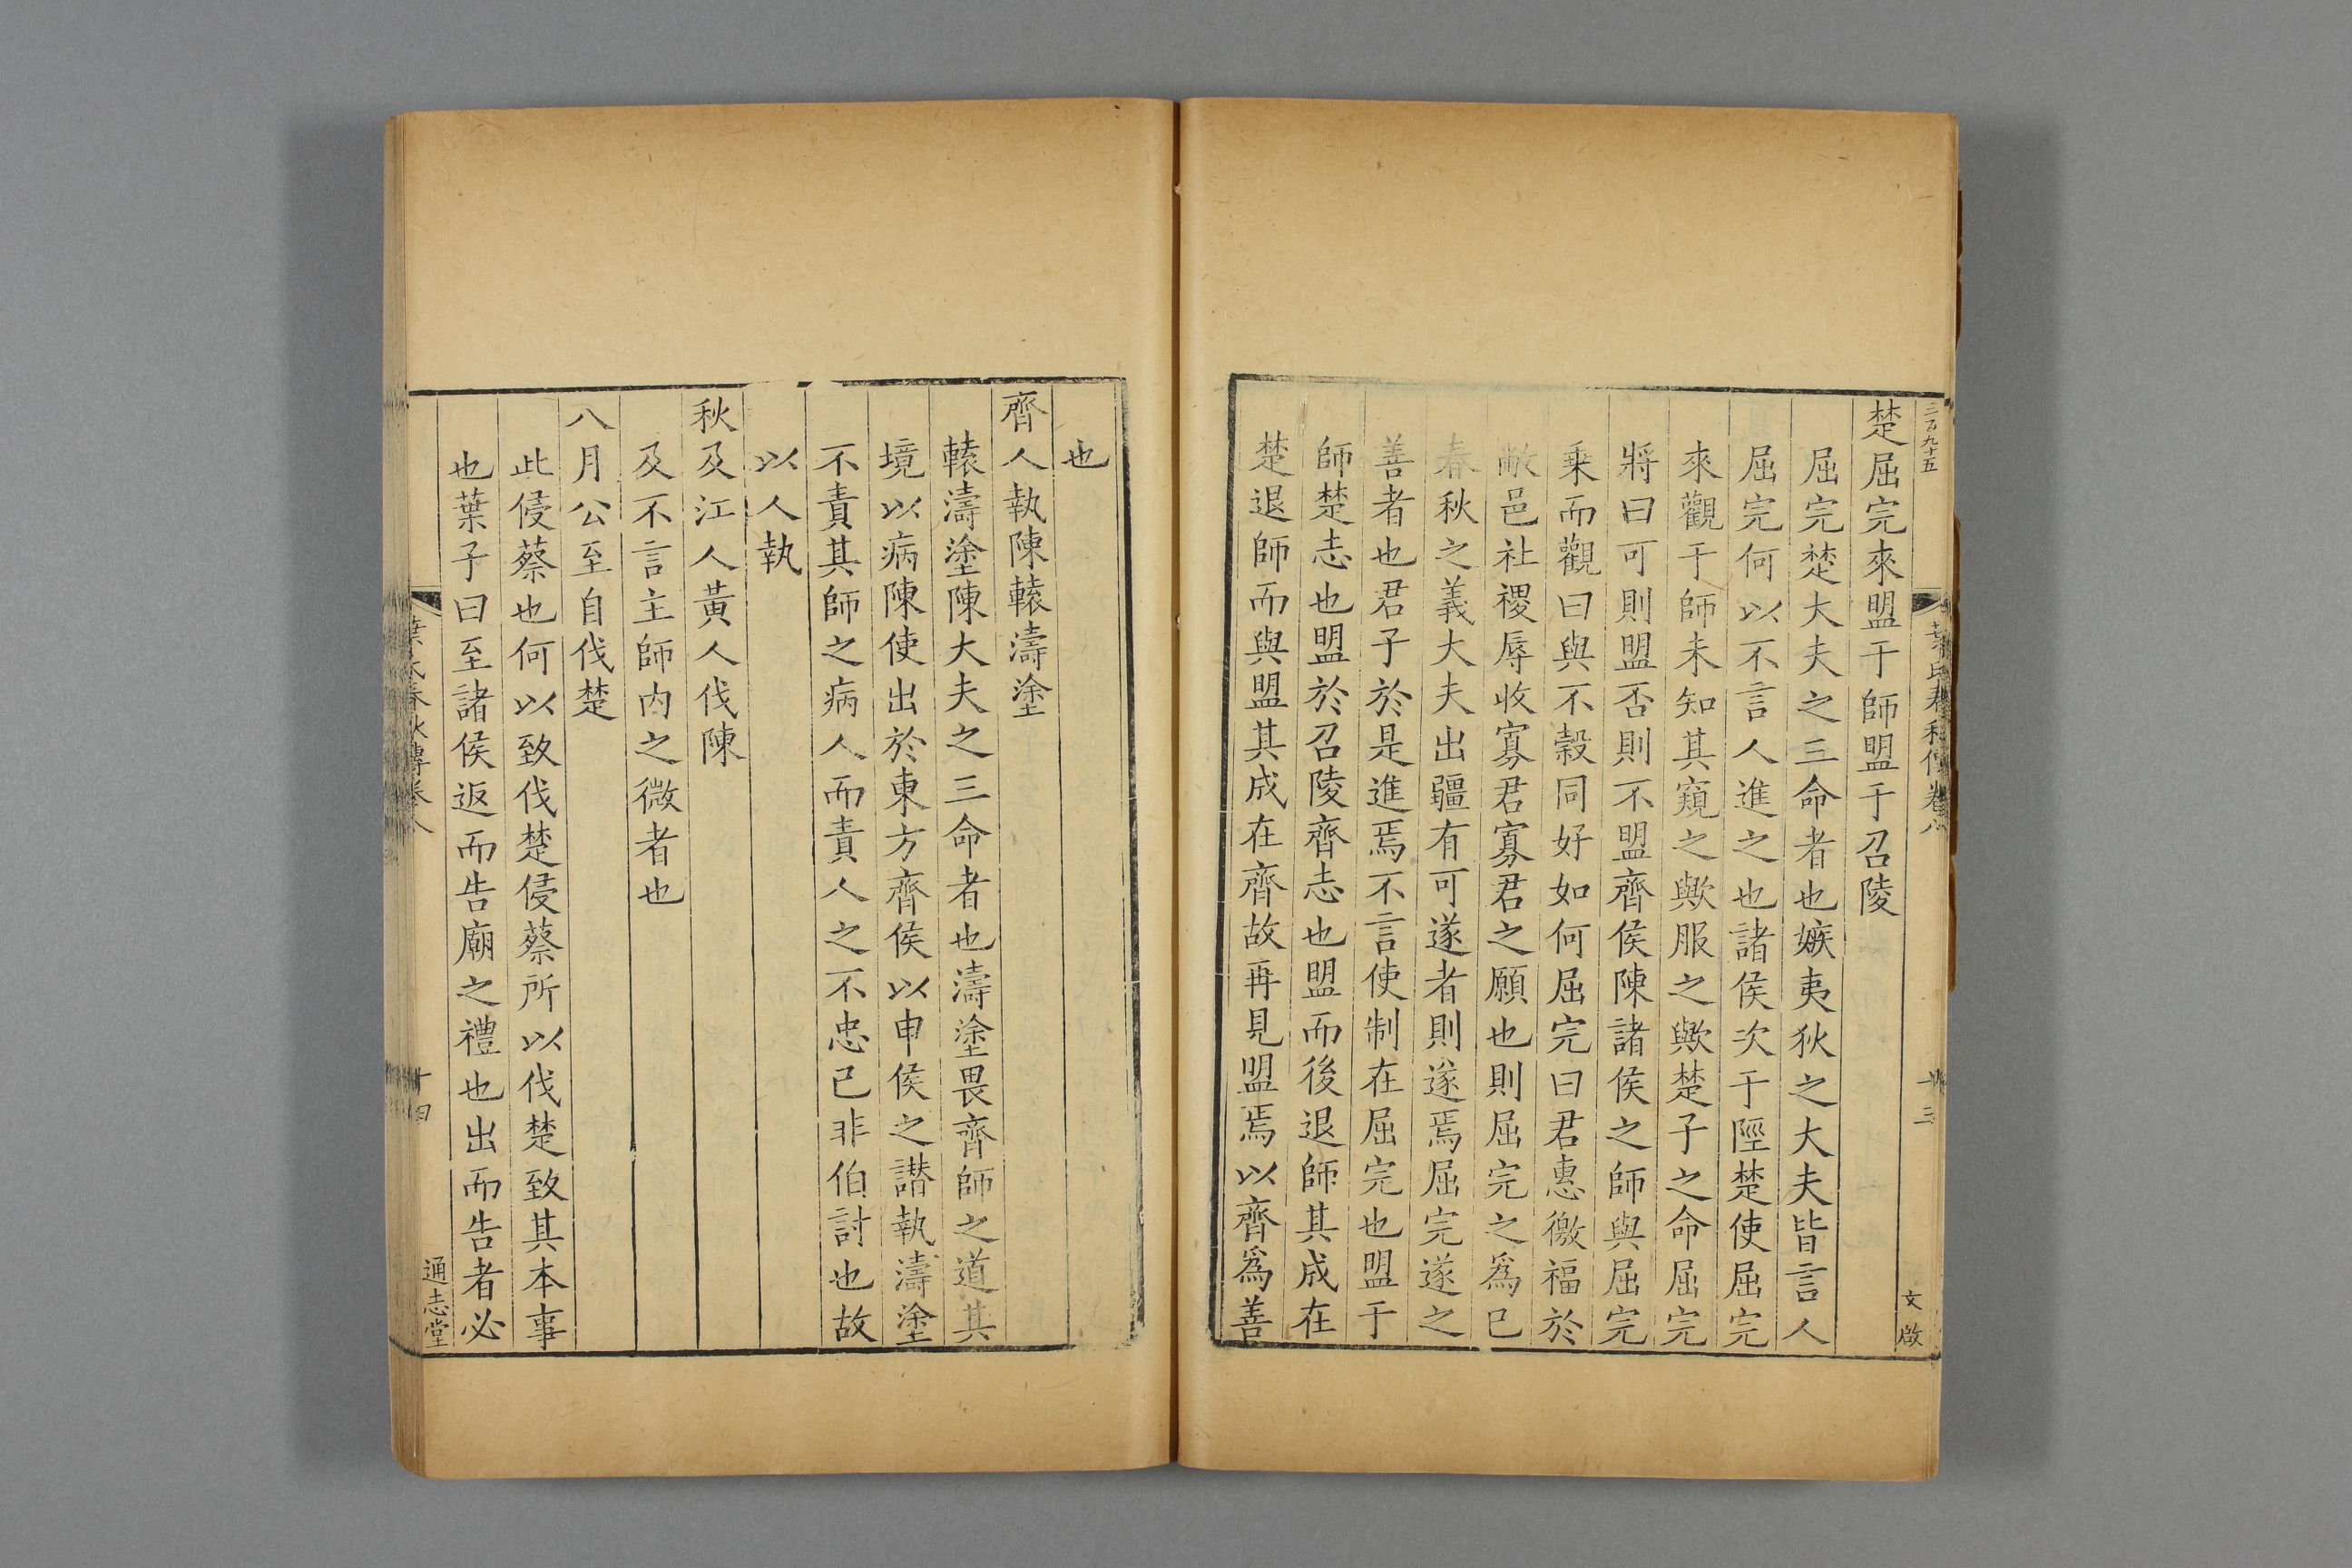 三百九十五
葉氏春秋傳卷八
十三
文啟
楚屈完來盟于師盟于召陵
屈完楚大夫之三命者也嫉夷狄之大夫皆言人
屈完何以不言人進之也諸侯次于陘楚使屈完
來觀于師未知其窺之歟服之歟楚子之命屈完
將曰可則盟否則不盟齊侯陳諸侯之師與屈完
乗而觀曰與不榖同好如何屈完曰君惠徼福於
敝邑社稷辱收寡君寡君之願也則屈完之爲已
春秋之義大夫出疆有可遂者則遂焉屈完遂之
善者也君子於是進焉不言使制在屈完也盟于
師楚志也盟於召陵齊志也盟而後退師其成在
楚退師而與盟其成在齊故再見盟焉以齊爲善
也
齊人執陳轅濤塗
轅濤塗陳大夫之三命者也濤塗畏齊師之道其
境以病陳使出於東方齊侯以申侯之譖執濤塗
不責其師之病人而責人之不忠已非伯討也故
以人執
秋及江人黃人伐陳
及不言主師内之微者也
八月公至自伐楚
此侵蔡也何以致伐楚侵蔡所以伐楚致其本事
也葉子曰至諸侯返而告廟之禮也出而告者必
葉氏春秋傳卷八
十四
通志堂